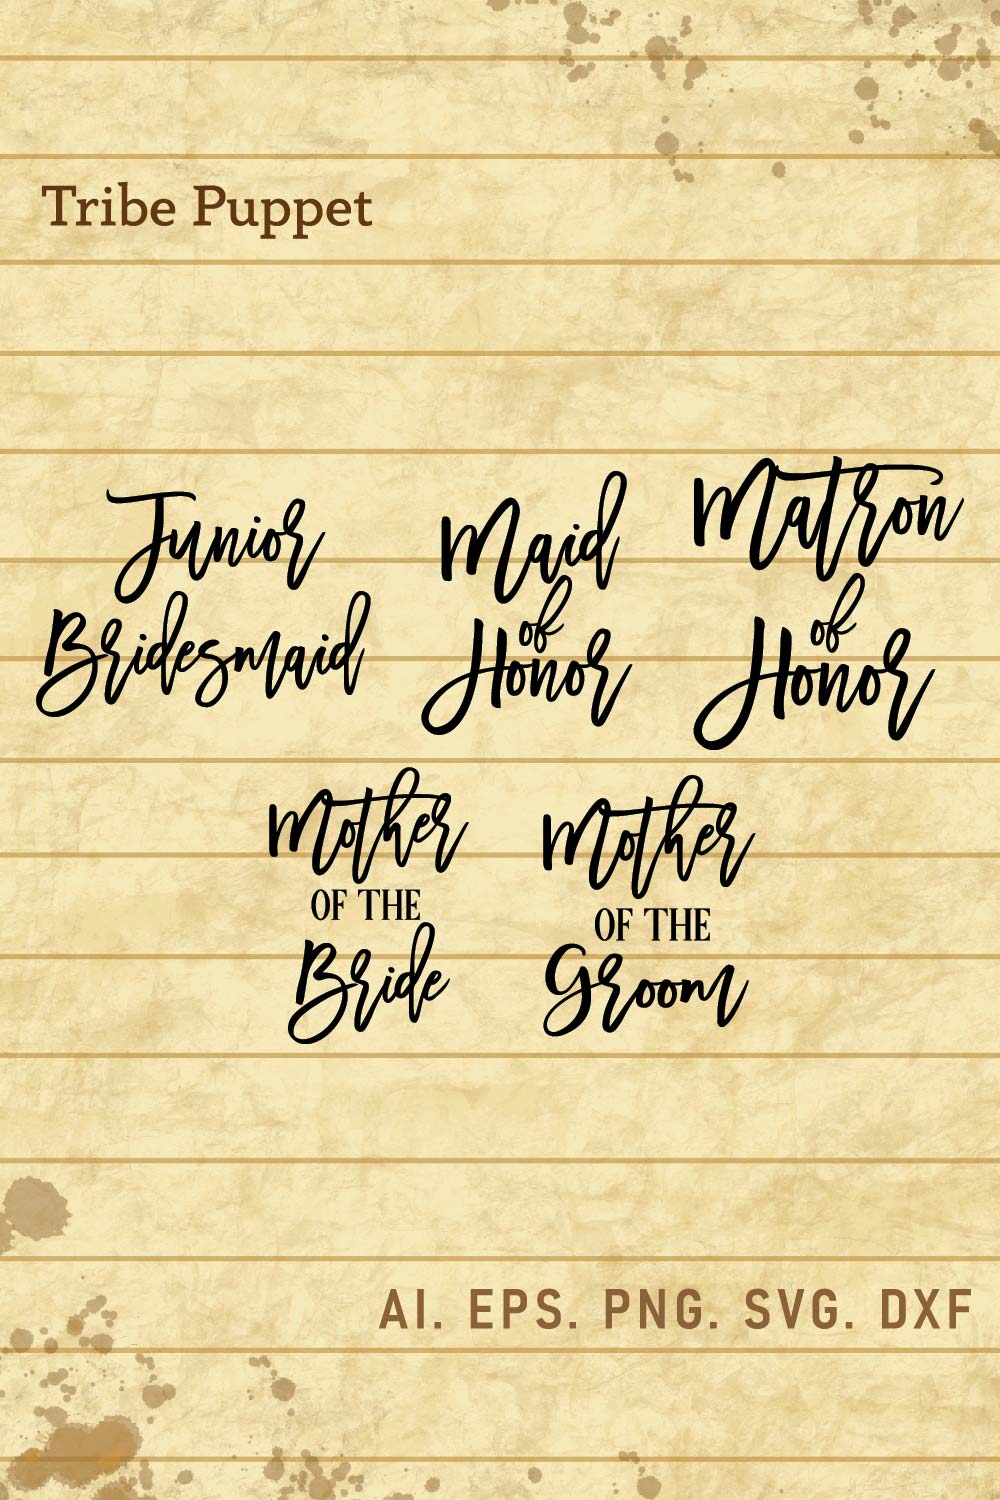 Tribe Puppet
Junior
Bridesmaid
Maid
of
Honor
Matron
of
Honor
Mother
OF THE
Bride
Mother
OF THE
Groom
AI. EPS. PNG. SVG. DXF